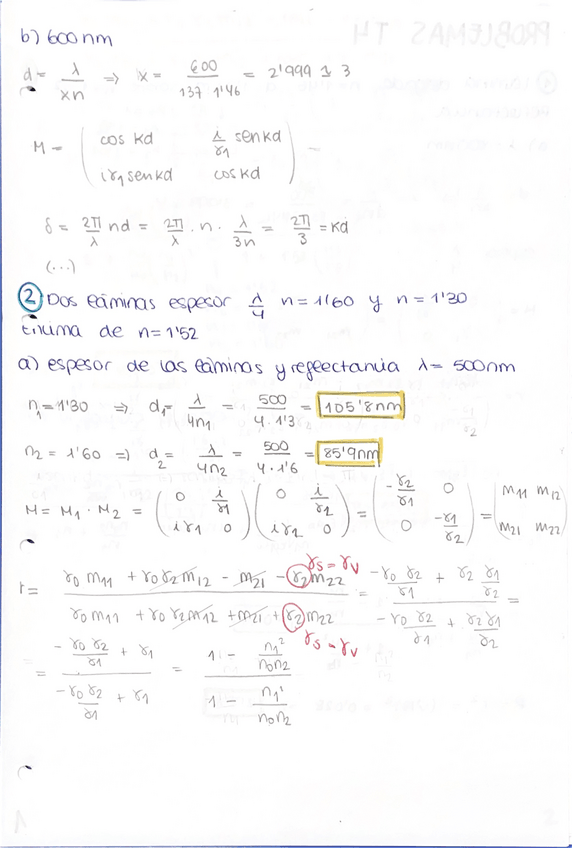 b) 600 nm
d = λ/xn ⇒ x = 600/137 1'46 = 2'999 ≃ 3
M = ( cos kd   i/γ1 sen kd
iγ1 sen kd   cos kd )
δ = 2π/λ nd = 2π/λ · n · λ/3n = 2π/3 = kd
(...)
② Dos láminas espesor λ/4 n = 1'60 y n = 1'30
última de n = 1'52
a) espesor de las láminas y reflectancia λ = 500 nm
n1 = 1'30 ⇒ d1 = λ/4n1 = 500/4·1'3 = 105'8 nm
n2 = 1'60 ⇒ d2 = λ/4n2 = 500/4·1'6 = 85'9 nm
M = M1 · M2 = ( 0   i/γ1
iγ1   0 ) ( 0   i/γ2
iγ2   0 ) = ( -γ2/γ1   0
0   -γ1/γ2 ) = ( m11 m12
m21 m22 )
γs = γv
r = γ0 m11 + γ0 γ2 m12 - m21 - γ2 m22 / γ0 m11 + γ0 γ2 m12 + m21 + γ2 m22 = -γ0 γ2/γ1 + γ2 γ1/γ2 / -γ0 γ2/γ1 + γ2 γ1/γ2 =
γs = γv
= -γ0 γ2/γ1 + γ1 / -γ0 γ2/γ1 + γ1 = 1 - n1²/n0n2 / 1 - n1'/n0n2